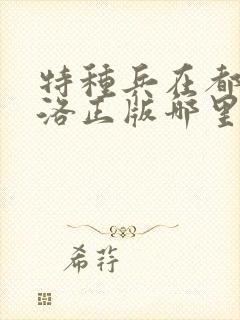 特種兵在都
洛正版哪里
希荇